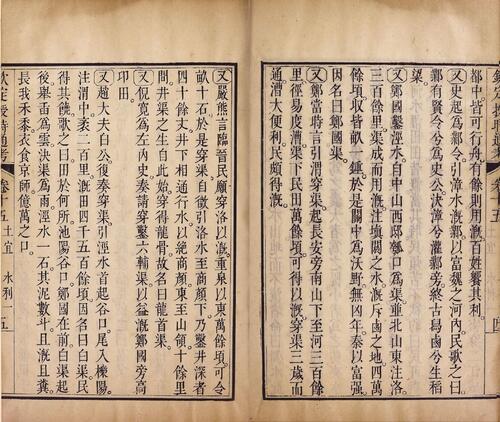 都中皆可行舟有餘則用溉百姓饗其利
又史起爲鄴令引漳水溉鄴以富魏之河內民歌之曰
鄴有賢令兮爲史公決漳兮灌鄴旁終古舄鹵兮生稻
梁
又鄭國鑿涇水自中山西邸瓠口爲渠並北山東注洛
三百餘里渠成而用溉注填閼之水溉斥鹵之地四萬
餘頃收皆畝一鍾於是關中爲沃野無凶年秦以富强
因名曰鄭國渠
又鄭當時言引渭穿渠起長安旁南山下至河三百餘
里徑易度漕渠下民田萬餘頃可得以溉穿渠三歲而
通漕大便利民頗得溉
又嚴熊言臨晉民願穿洛以溉重泉以東萬餘頃可令
畝十石於是穿渠自徵引洛水至商顏下乃鑿井深者
四十餘丈井下相通行水以絶商顏東至山嶺十餘里
間井渠之生自此始穿得龍骨故名曰龍首渠
又倪寬爲左內史奏請穿鑿六輔渠以益溉鄭國旁高
卬田
又趙大夫白公復奏穿渠引涇水首起谷口尾入櫟陽
注渭中袤二百里溉田四千五百餘頃因名曰白渠民
得其饒歌之曰田於何所池陽谷口鄭國在前白渠起
後舉臿爲雲決渠爲雨涇水一石其泥數斗且溉且糞
長我禾黍衣食京師億萬之口
欽定授時通考 卷十五 土宜 水利二 五